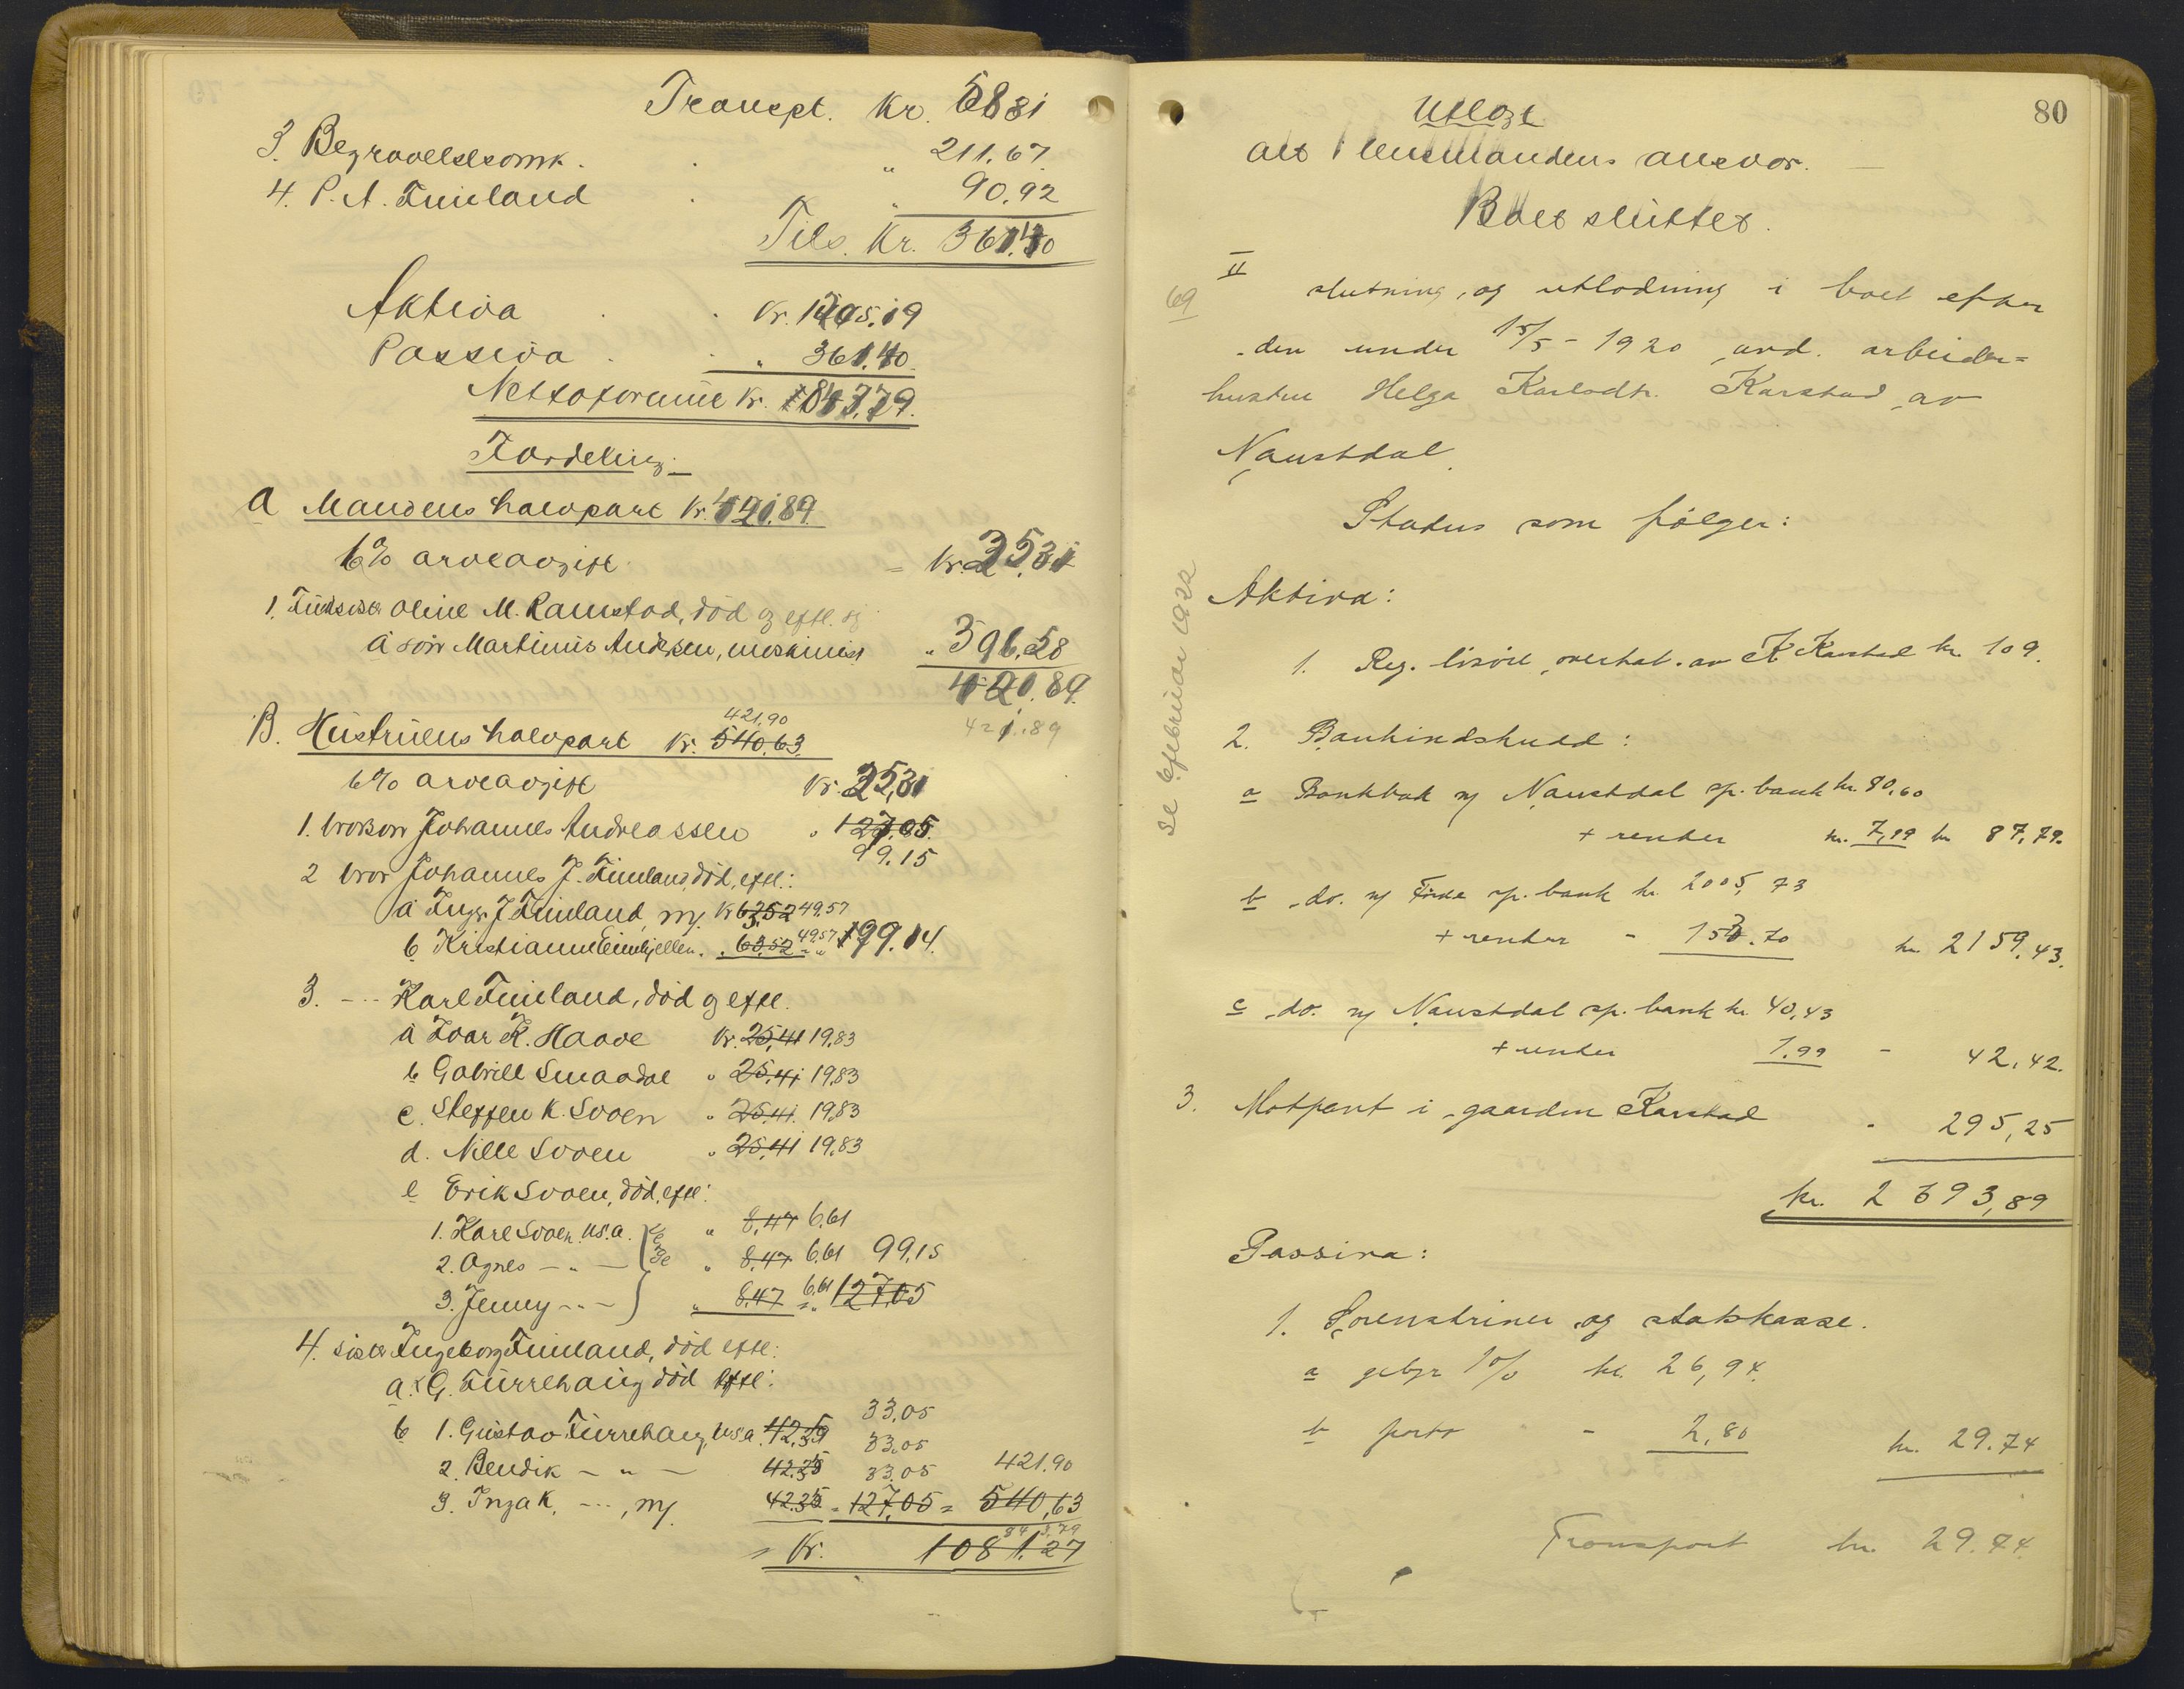 Transpt. Kr. 5881
3. Begravelsesomk. " 211.67
4. P. A. Fimland " 90.92
Tils. Kr. 361.40
Aktiva Kr. 1205.19
Passiva " 361.40
Nettoformue Kr. 843.79.
Fordeling
A Mandens halvpart Kr. 421.89.
6% arveavgift = Kr. 25.31
1. Oline M. Ramstad, död og eftl.
a sön Martinus Andersen, maskinist " 396.58
421.89.
421.89
421.90
B. Hustruens halvpart Kr. 540.63.
6% arveavgift Kr. 25,31
1. brorsön Johannes Andreassen " 127.05.
99.15
2 bror Johannes J. Fimland, död, eftl.:
a Inger J Fimland, m/ Kr 63,52 49,57
b Kristianne Eimhjellen " 63,52 49,57 = " 99.14.
3. -"- Karl Fimland, död og eftl.
a Ivar K. Haave Kr. 25,41 19,83
b Gabriell Smaadal " 25,41 19,83
c. Steffen K. Svoen " 25,41. 19,83
d. Nille Svoen " 25,41 19,83
e Erik Svoen, död, eftl:
1. Karl Svoen U.S.A. " 8,47 6,61
2. Agnes - " - " 8,47 6,61 99,15
verge
3. Jenny - " - " 8,47 6,61 = " 127,05
4. söster Ingeborg Fimland, död eftl:
a. G. Furrehaug död eftl:
33,05
b 1. Gustav Furrehaug, U.S.A. 42,35 33.05
2. Bendik - " - 42.35 33.05 421.90
3. Inga K. - " -, m/ 42.35 = 127,05 = 540,63
843,79
= Kr. 1081.27
80
Utlagt
alt lensmandens ansvar.
Boet sluttet.
II
69
slutning, og utlodning i boet efter
den under 15/5 - 1920 avd. arbeider=
hustru Helga Karlsdtr. Karstad av
Naustdal.
Status som følger:
se februar 1922
Aktiva:
1. Reg. lösöre overtat av K Karstad kr. 109.
2. Bankindskudd:
a Bankbok m/ Naustdal sp. bank kr. 80,60
+ renter kr. 7,19 kr 87,79.
b do. m/ Förde sp. bank kr. 2005,73
+ renter - 153.70 kr 2159,43.
c do. m/ Naustdal sp. bank kr. 40,43
+ renter 1,99 - 42,42.
3. Motpant i gaarden Karstad - 295,25
kr. 2 693,89
Passiva:
1. Sorenskriver og statskasse.
a gebyr 1% kr. 26,94.
b porto - 2,80 kr. 29.74
Transport kr. 29.74.